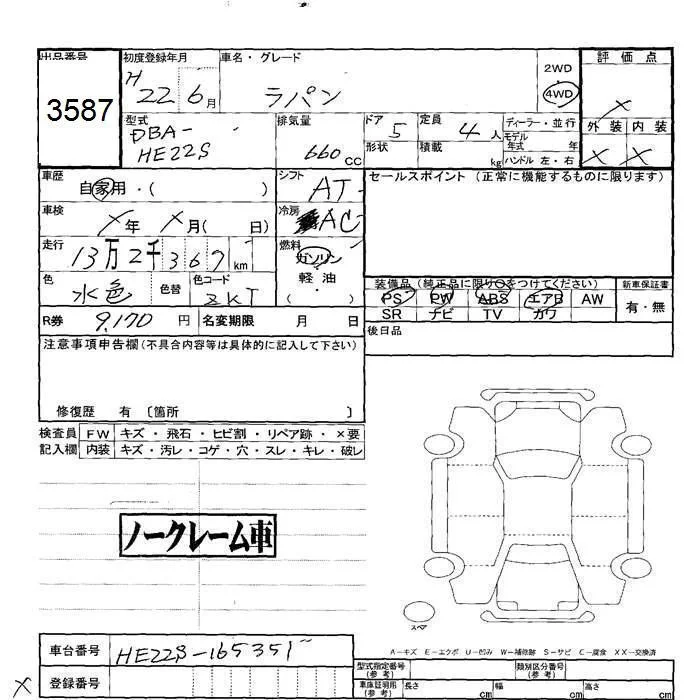 出品番号 初度登録年月 車名・グレード 2WD 評価点
3587 H 22 6月 ラパン 4WD
外装 内装
型式 排気量 ドア 定員 ディーラー・並行
DBA- 5 4人 モデル
HE22S 660 CC 形状 積載 kg 年式 年
ハンドル 左・右
X X
車歴 自家用・( ) シフト AT セールスポイント (正常に機能するものに限ります)
車検 X年 X月( 日) 冷房 AC
走行 13万2千367km 燃料 ガソリン
軽油
( )
色 水色 色替 色コード ZKT
装備品(純正品に限り○をつけてください) 新車保証書
PS PW ABS エアB AW 有・無
SR ナビ TV カワ
R券 9,170円 名変期限 月 日
後日品
注意事項申告欄(不具合内容等は具体的に記入して下さい)
修復歴 有 〔箇所 〕
検査員 FW キズ・飛石・ヒビ割・リペア跡・×要
記入欄 内装 キズ・汚レ・コゲ・穴・スレ・キレ・破レ
ノークレーム車
スペア
A-キズ E-エクボ U-凹み W-補修跡 S-サビ C-腐食 XX-交換済
車台番号 HE22S-165351
登録番号
型式指定番号(参考) 類別区分番号(参考)
車庫証明用(参考) 長さ cm 幅 cm 高さ cm